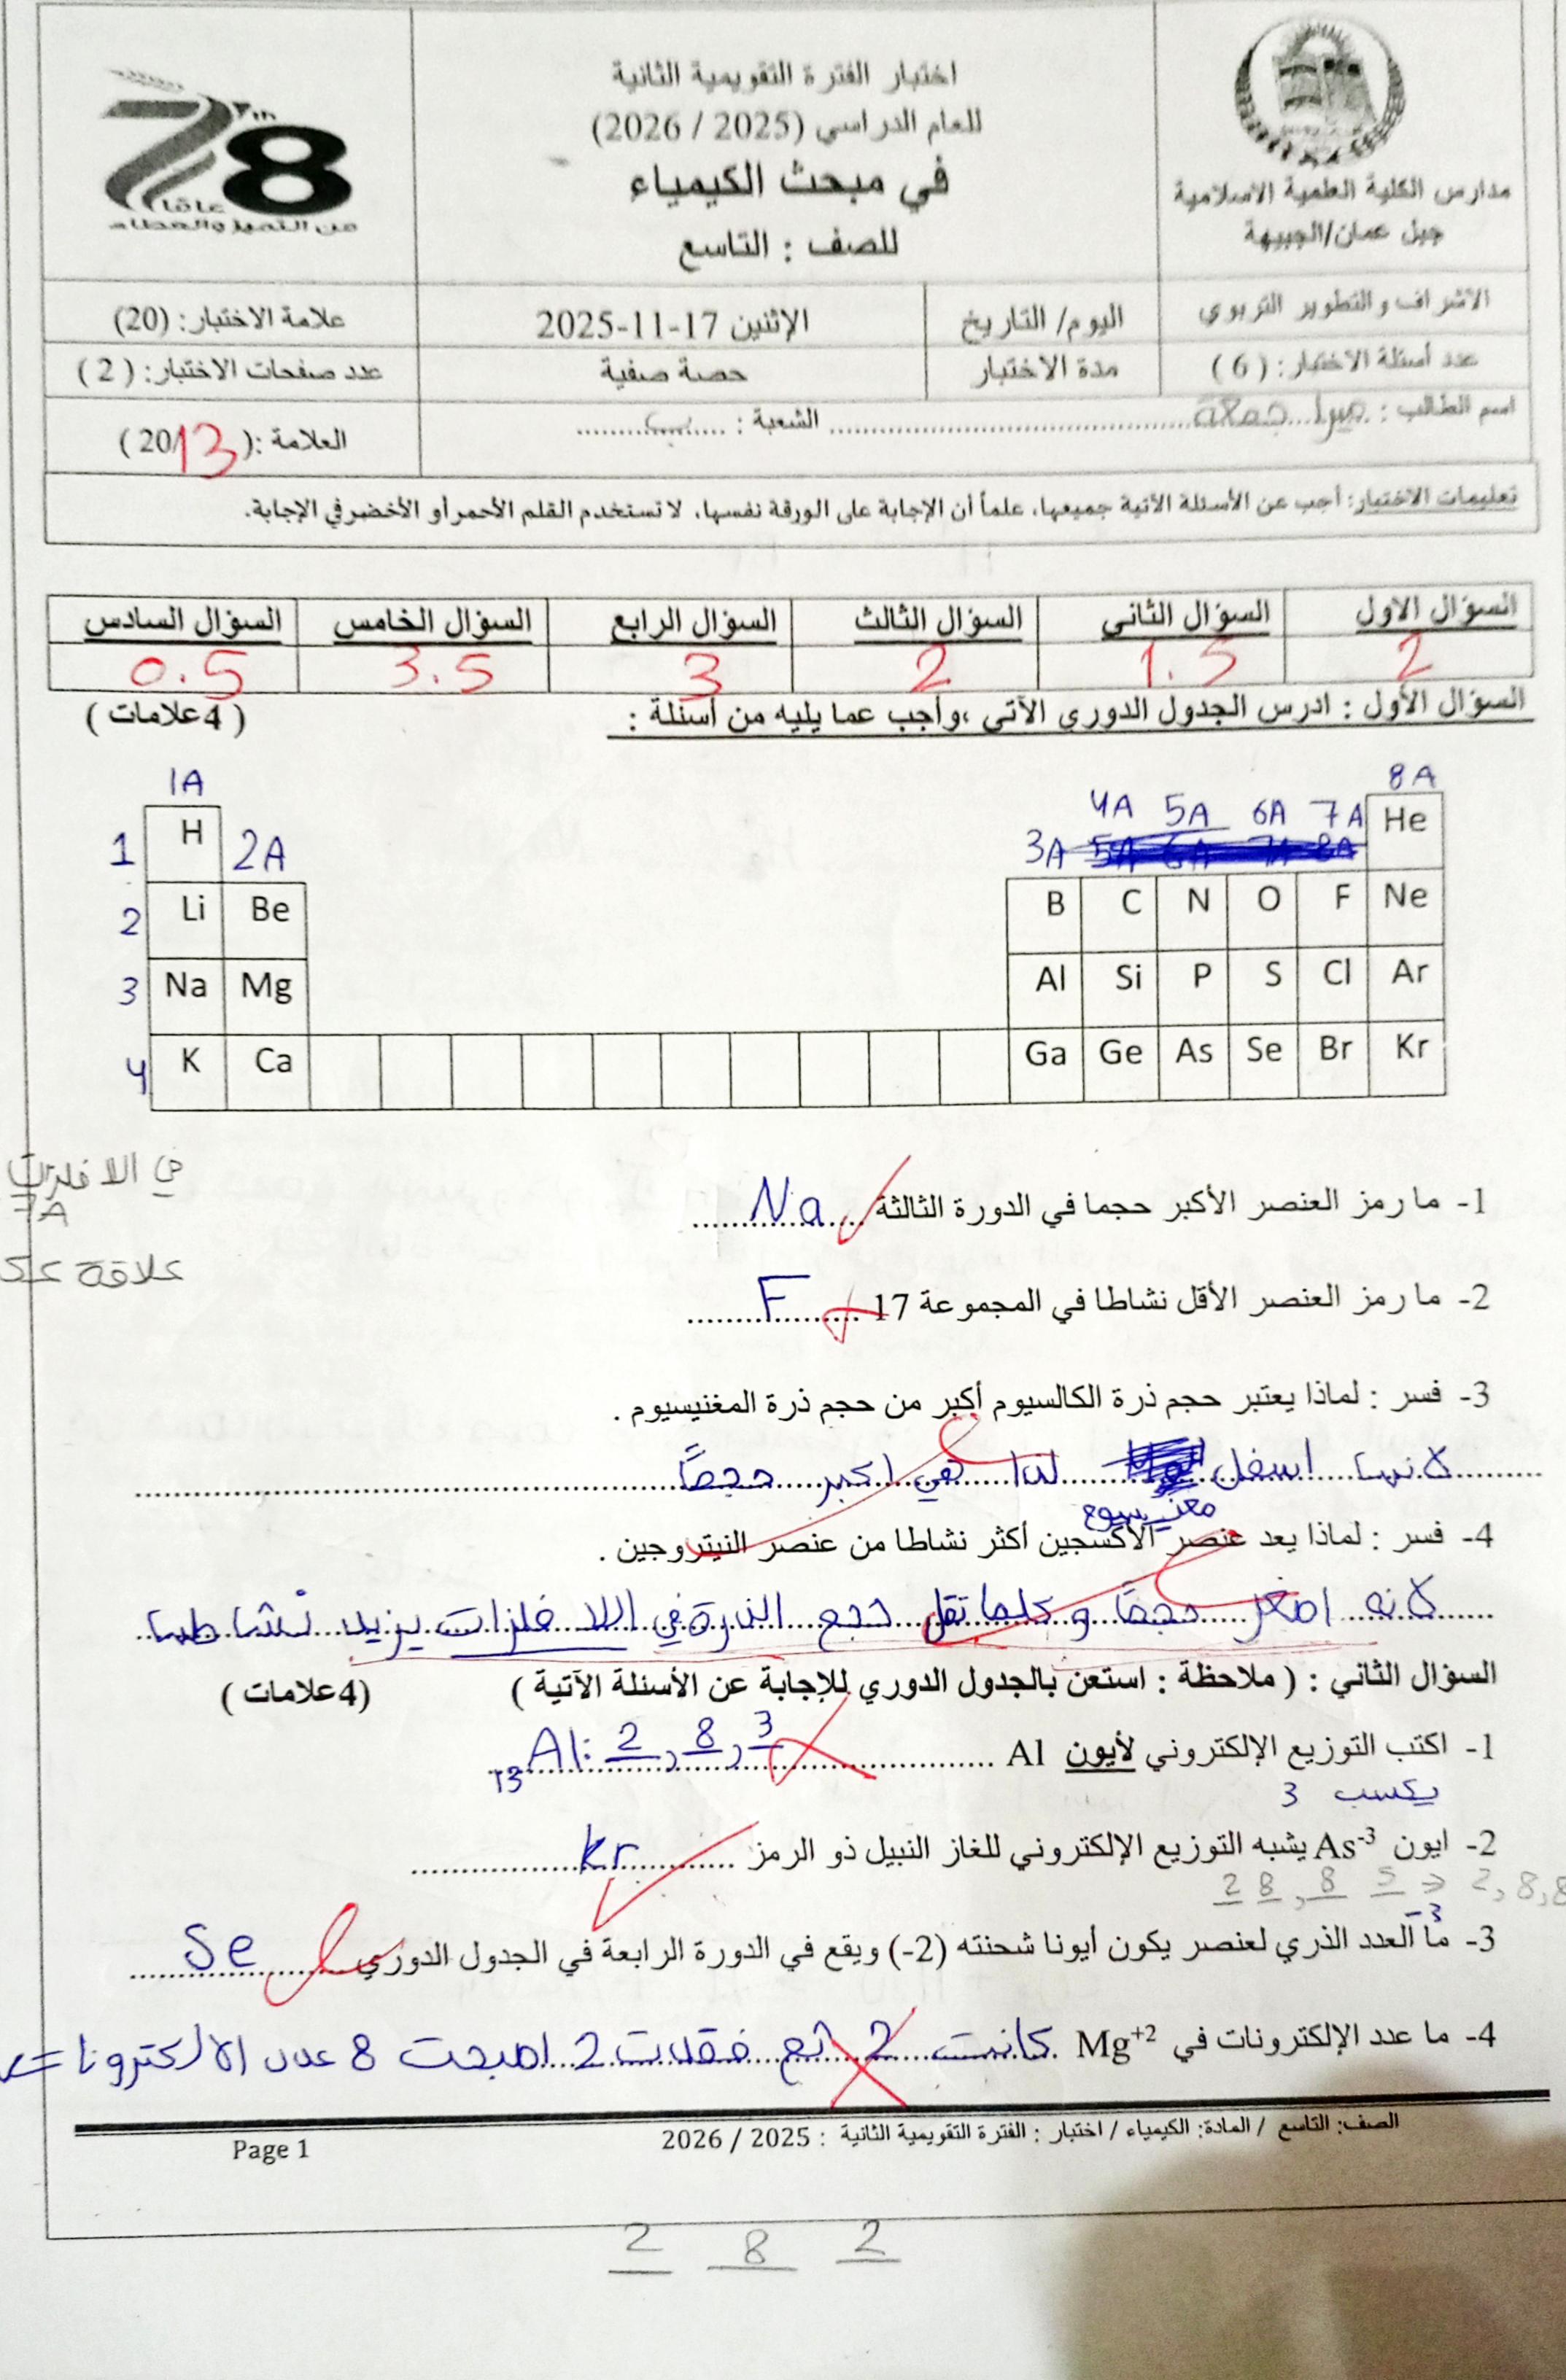 اختبار الفترة التقويمية الثانية
للعام الدراسي (2025 / 2026)
في مبحث الكيمياء
للصف : التاسع
مدارس الكلية العلمية الاسلامية
جبل عمان/الجبيهة
78 th
عامًا
من التميز والعطاء
الاشراف والتطوير التربوي
اليوم/ التاريخ
الإثنين 17-11-2025
علامة الاختبار: (20)
عدد أسئلة الاختبار: (6)
مدة الاختبار
حصة صفية
عدد صفحات الاختبار: (2)
اسم الطالب : جمعة
الشعبة : ب
العلامة :(13/20)
تعليمات الاختبار: أجب عن الأسئلة الآتية جميعها، علماً أن الإجابة على الورقة نفسها، لا تستخدم القلم الأحمر أو الأخضر في الإجابة.
السؤال الاول السؤال الثاني السؤال الثالث السؤال الرابع السؤال الخامس السؤال السادس
2 1.5 2 3 3.5 0.5
السؤال الأول : ادرس الجدول الدوري الآتي ،وأجب عما يليه من أسئلة : (4 علامات)
1A 8A
4A 5A 6A 7A
1 H 2A 3A He
2 Li Be B C N O F Ne
3 Na Mg Al Si P S Cl Ar
4 K Ca Ga Ge As Se Br Kr
في الافلزات
7A
1- ما رمز العنصر الأكبر حجما في الدورة الثالثة Na
علاقة
2- ما رمز العنصر الأقل نشاطا في المجموعة 17 F
3- فسر : لماذا يعتبر حجم ذرة الكالسيوم أكبر من حجم ذرة المغنيسيوم .
لانها اسفل مغنيسيوم لذا هي اكبر حجمًا
4- فسر : لماذا يعد عنصر الأكسجين أكثر نشاطا من عنصر النيتروجين .
لانه اصغر حجمًا و كلما تقل حجم الذرة في اللافلزات يزيد نشاطها
السؤال الثاني : ( ملاحظة : استعن بالجدول الدوري للإجابة عن الأسئلة الآتية ) (4 علامات)
1- اكتب التوزيع الإلكتروني لأيون Al 13Al: 2, 8, 3
يكسب 3
2- ايون As-3 يشبه التوزيع الإلكتروني للغاز النبيل ذو الرمز Kr
2 8, 8 5 → 2, 8, 8
-3
3- ما العدد الذري لعنصر يكون أيونا شحنته (2-) ويقع في الدورة الرابعة في الجدول الدوري Se
4- ما عدد الإلكترونات في Mg+2 كانت 2 فقدت 2 اصبحت 8 عدد الالكترونا
الصف: التاسع / المادة: الكيمياء / اختبار : الفترة التقويمية الثانية : 2025 / 2026
Page 1
2 8 2